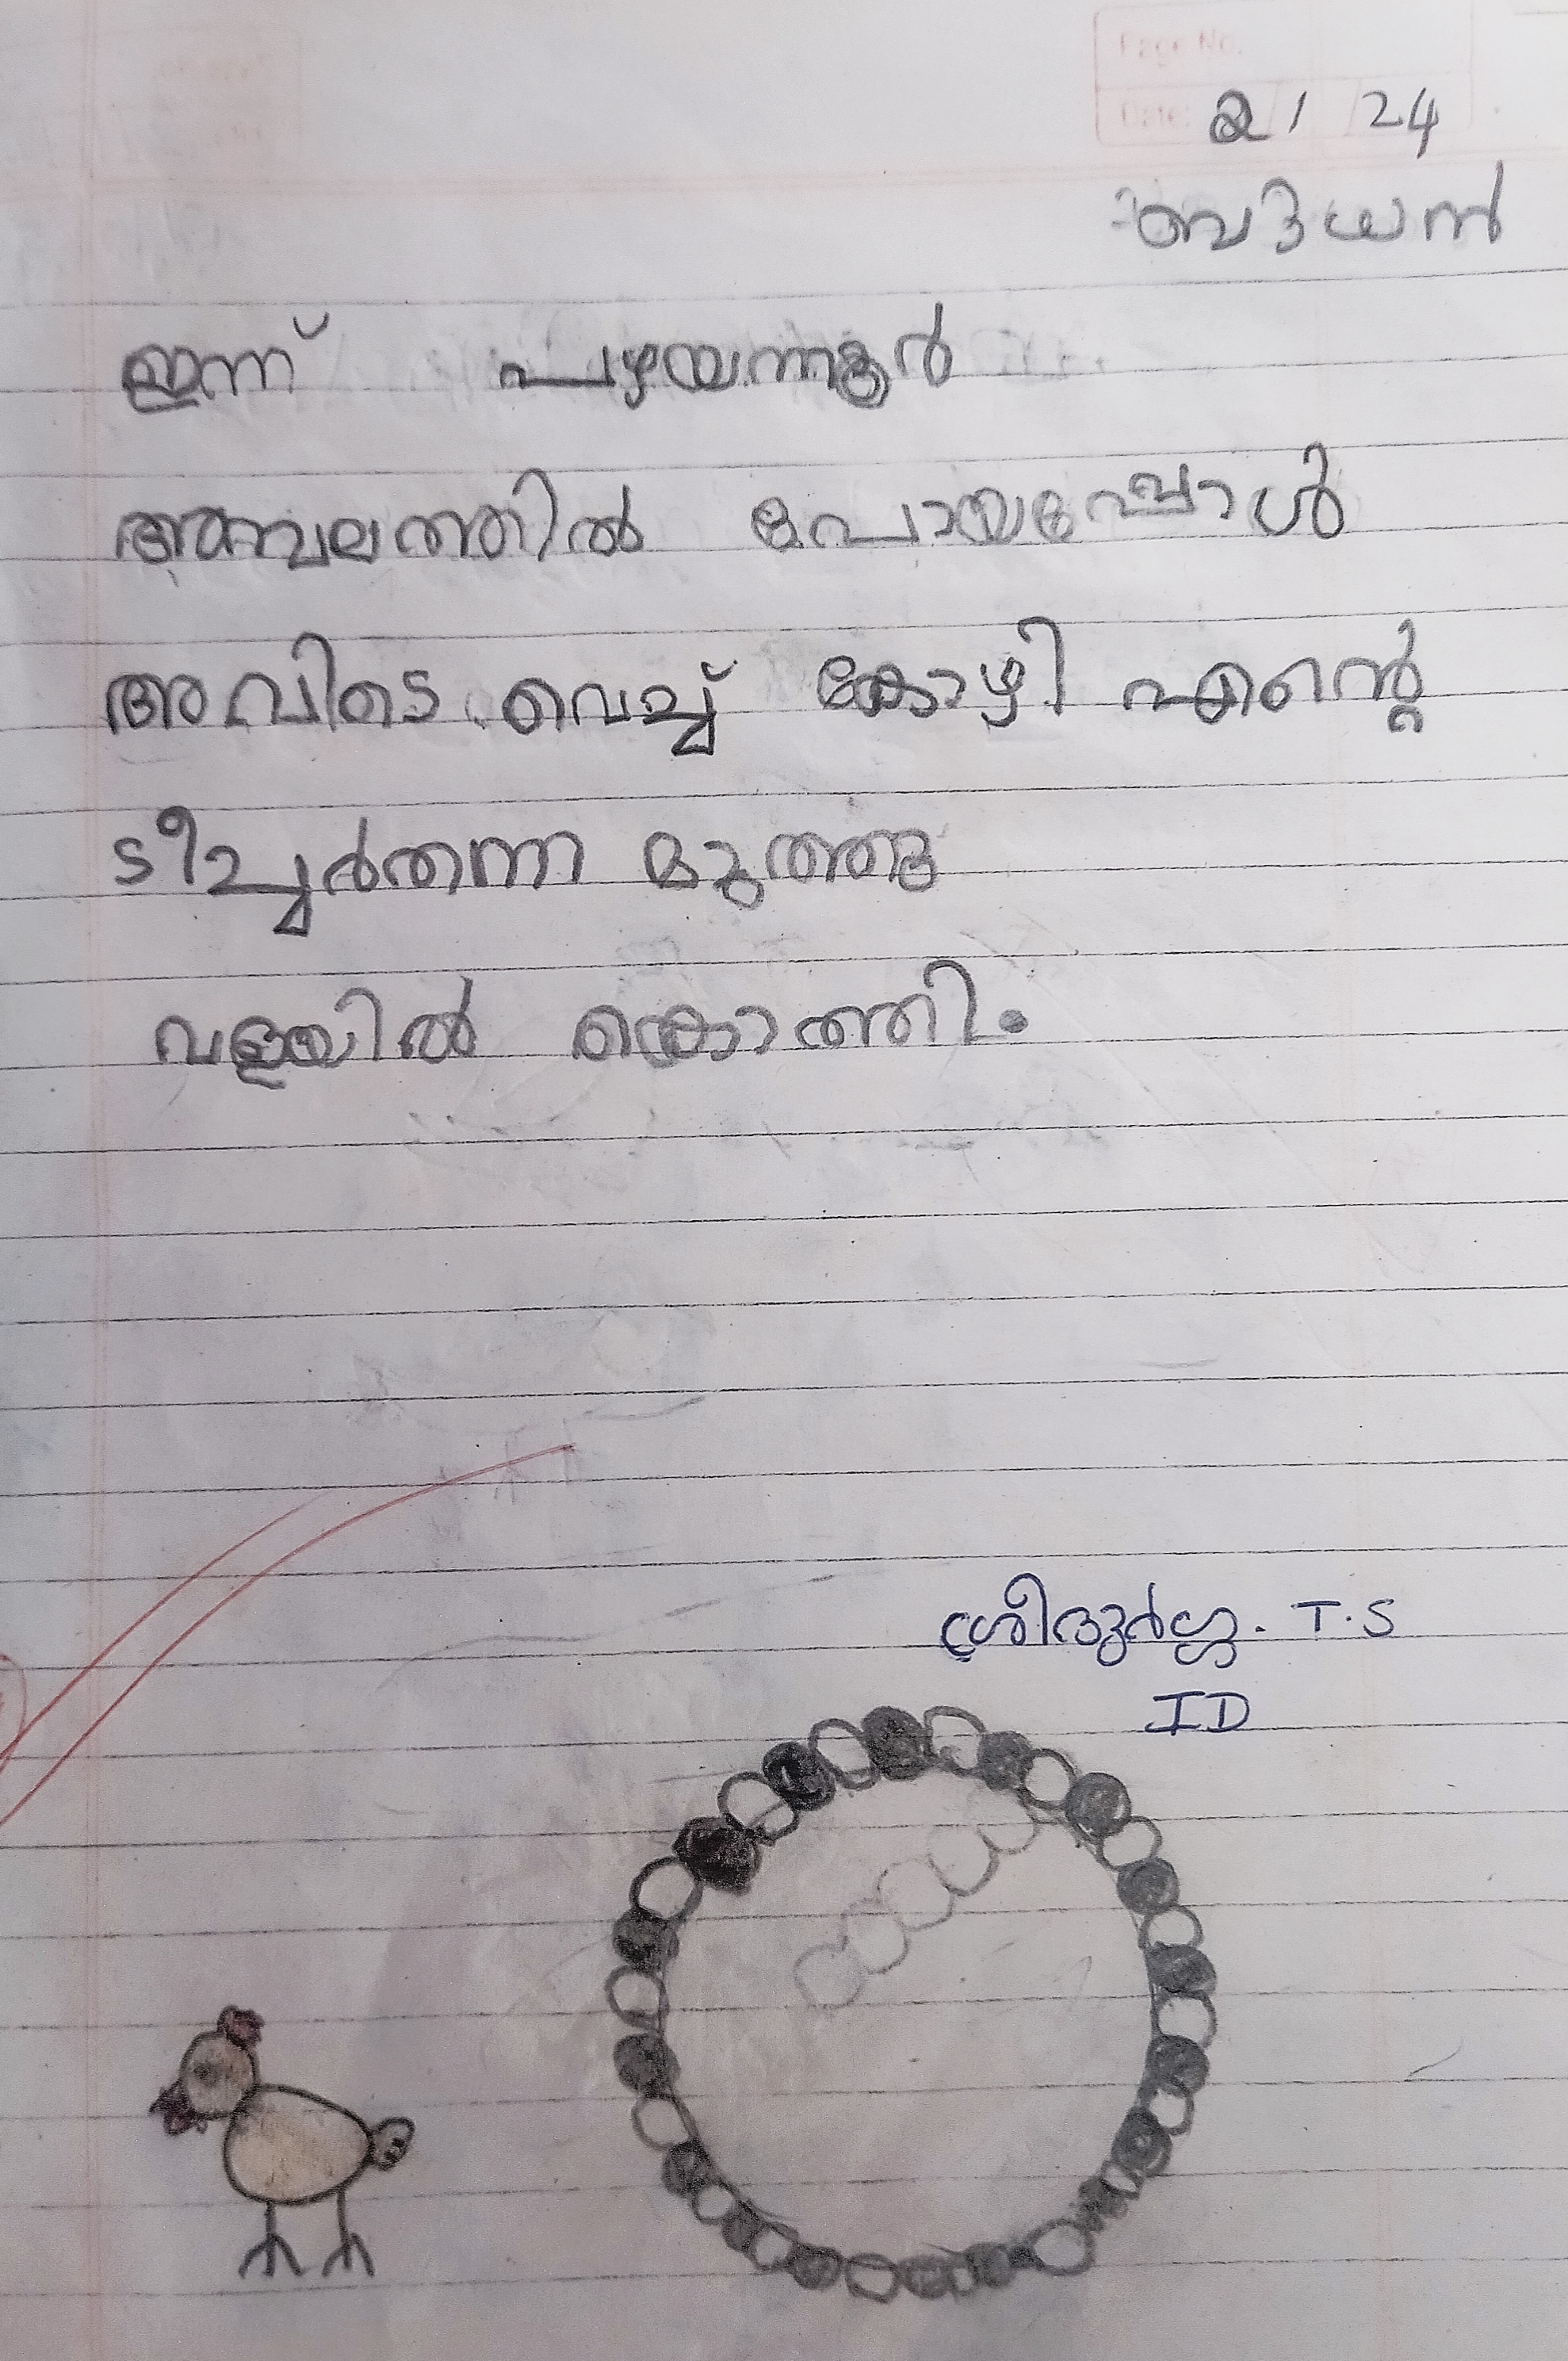 Page No.
Date: 2/1/24
ബുധൻ
ഇന്ന് പഴയന്നൂർ
അമ്പലത്തിൽ പോയപ്പോൾ
അവിടെ വെച്ച് കോഴി എന്റെ
ടീച്ചർതന്ന മുത്തു
വളയിൽ കൊത്തി.
ശ്രീദുർഗ്ഗ. T.S
ID